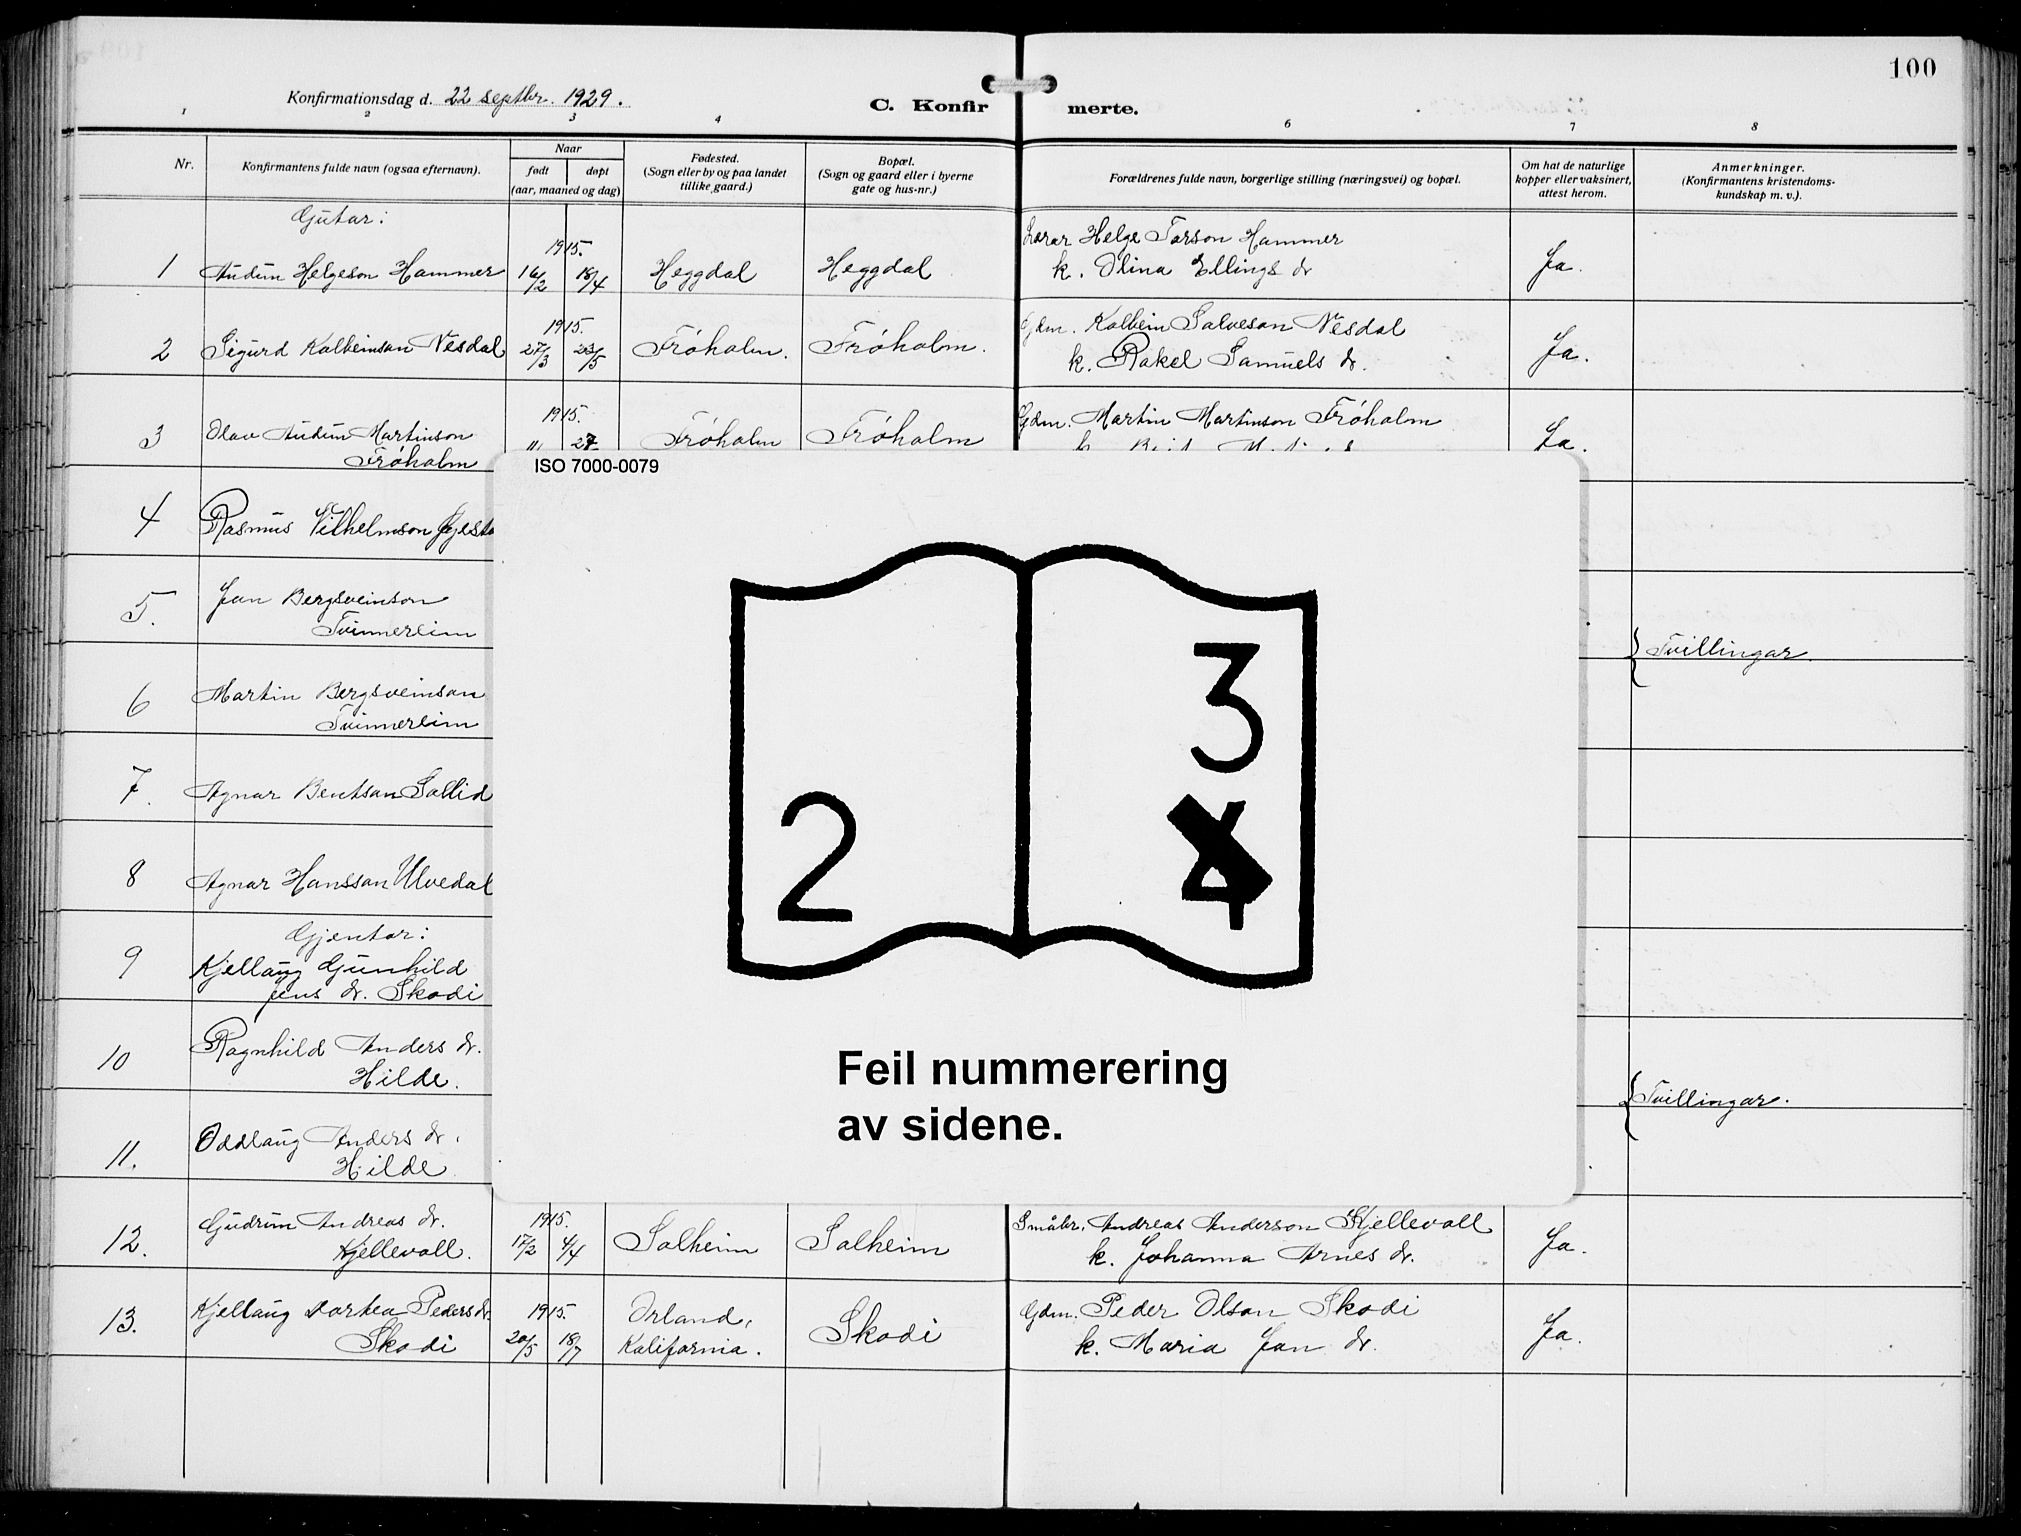 100
Konfirmationsdag d. 22 septbr. 1929.
C. Konfir merte.
1 2 3 4 6 7 8
Nr.
Konfirmantens fulde navn (ogsaa efternavn).
Naar
født døpt
(aar, maaned og dag)
Fødested.
(Sogn eller by og paa landet
tillike gaard.)
Bopæl.
(Sogn og gaard eller i byerne
gate og hus-nr.)
Forældrenes fulde navn, borgerlige stilling (næringsvei) og bopæl.
Om hat de naturlige
kopper eller vaksinert,
attest herom.
Anmerkninger.
(Konfirmantens kristendoms-
kundskap m. v.).
Gutar:
1915. Lærar Helge Tarson Hammer
1 Audun Helgeson Hammer 16/2 18/4 Heggdal Heggdal k. Olina Ellings dr Ja.
1915. Gdm. Kolbein Salveson Nesdal
2 Sigurd Kolbeinson Nesdal 27/3 23/5 Frøholm. Frøholm. k. Rakel Samuels dr. Ja.
1915. Gdm. Martin Martinson Frøholm
3 Olav Audun Martinson Frøholm Frøholm Ja.
Frøholm
ISO 7000-0079
4 Rasmus Vilhelmson
5. Jon Bergsveinson
Tvinnereim
Tvillingar
6 Martin Bergsveinson
Tvinnereim
7. Agnar Bentson Sollid
8 Agnar Hansson Ulvedal
Gjentor:
9 Kjellaug Gunhild
Jens dr. Skodi
10 Ragnhild Anders dr.
Hilde.
Tvillingar.
11. Oddlaug Anders dr.
Hilde
2
3
4
Feil nummerering
av sidene.
Gudrun Andreas dr. 1915. Småbr. Andreas Anderson Kjellevoll
12. Kjellevoll. 17/2 4/4 Solheim Solheim k. Johanna Arnes dr. Ja.
Kjellaug Dortea Peders dr. 1915. Orland, Gdm. Peder Olson Skodi
13. Skodi 20/5 18/7 Kalifornia. Skodi k. Maria Jon dr. Ja.